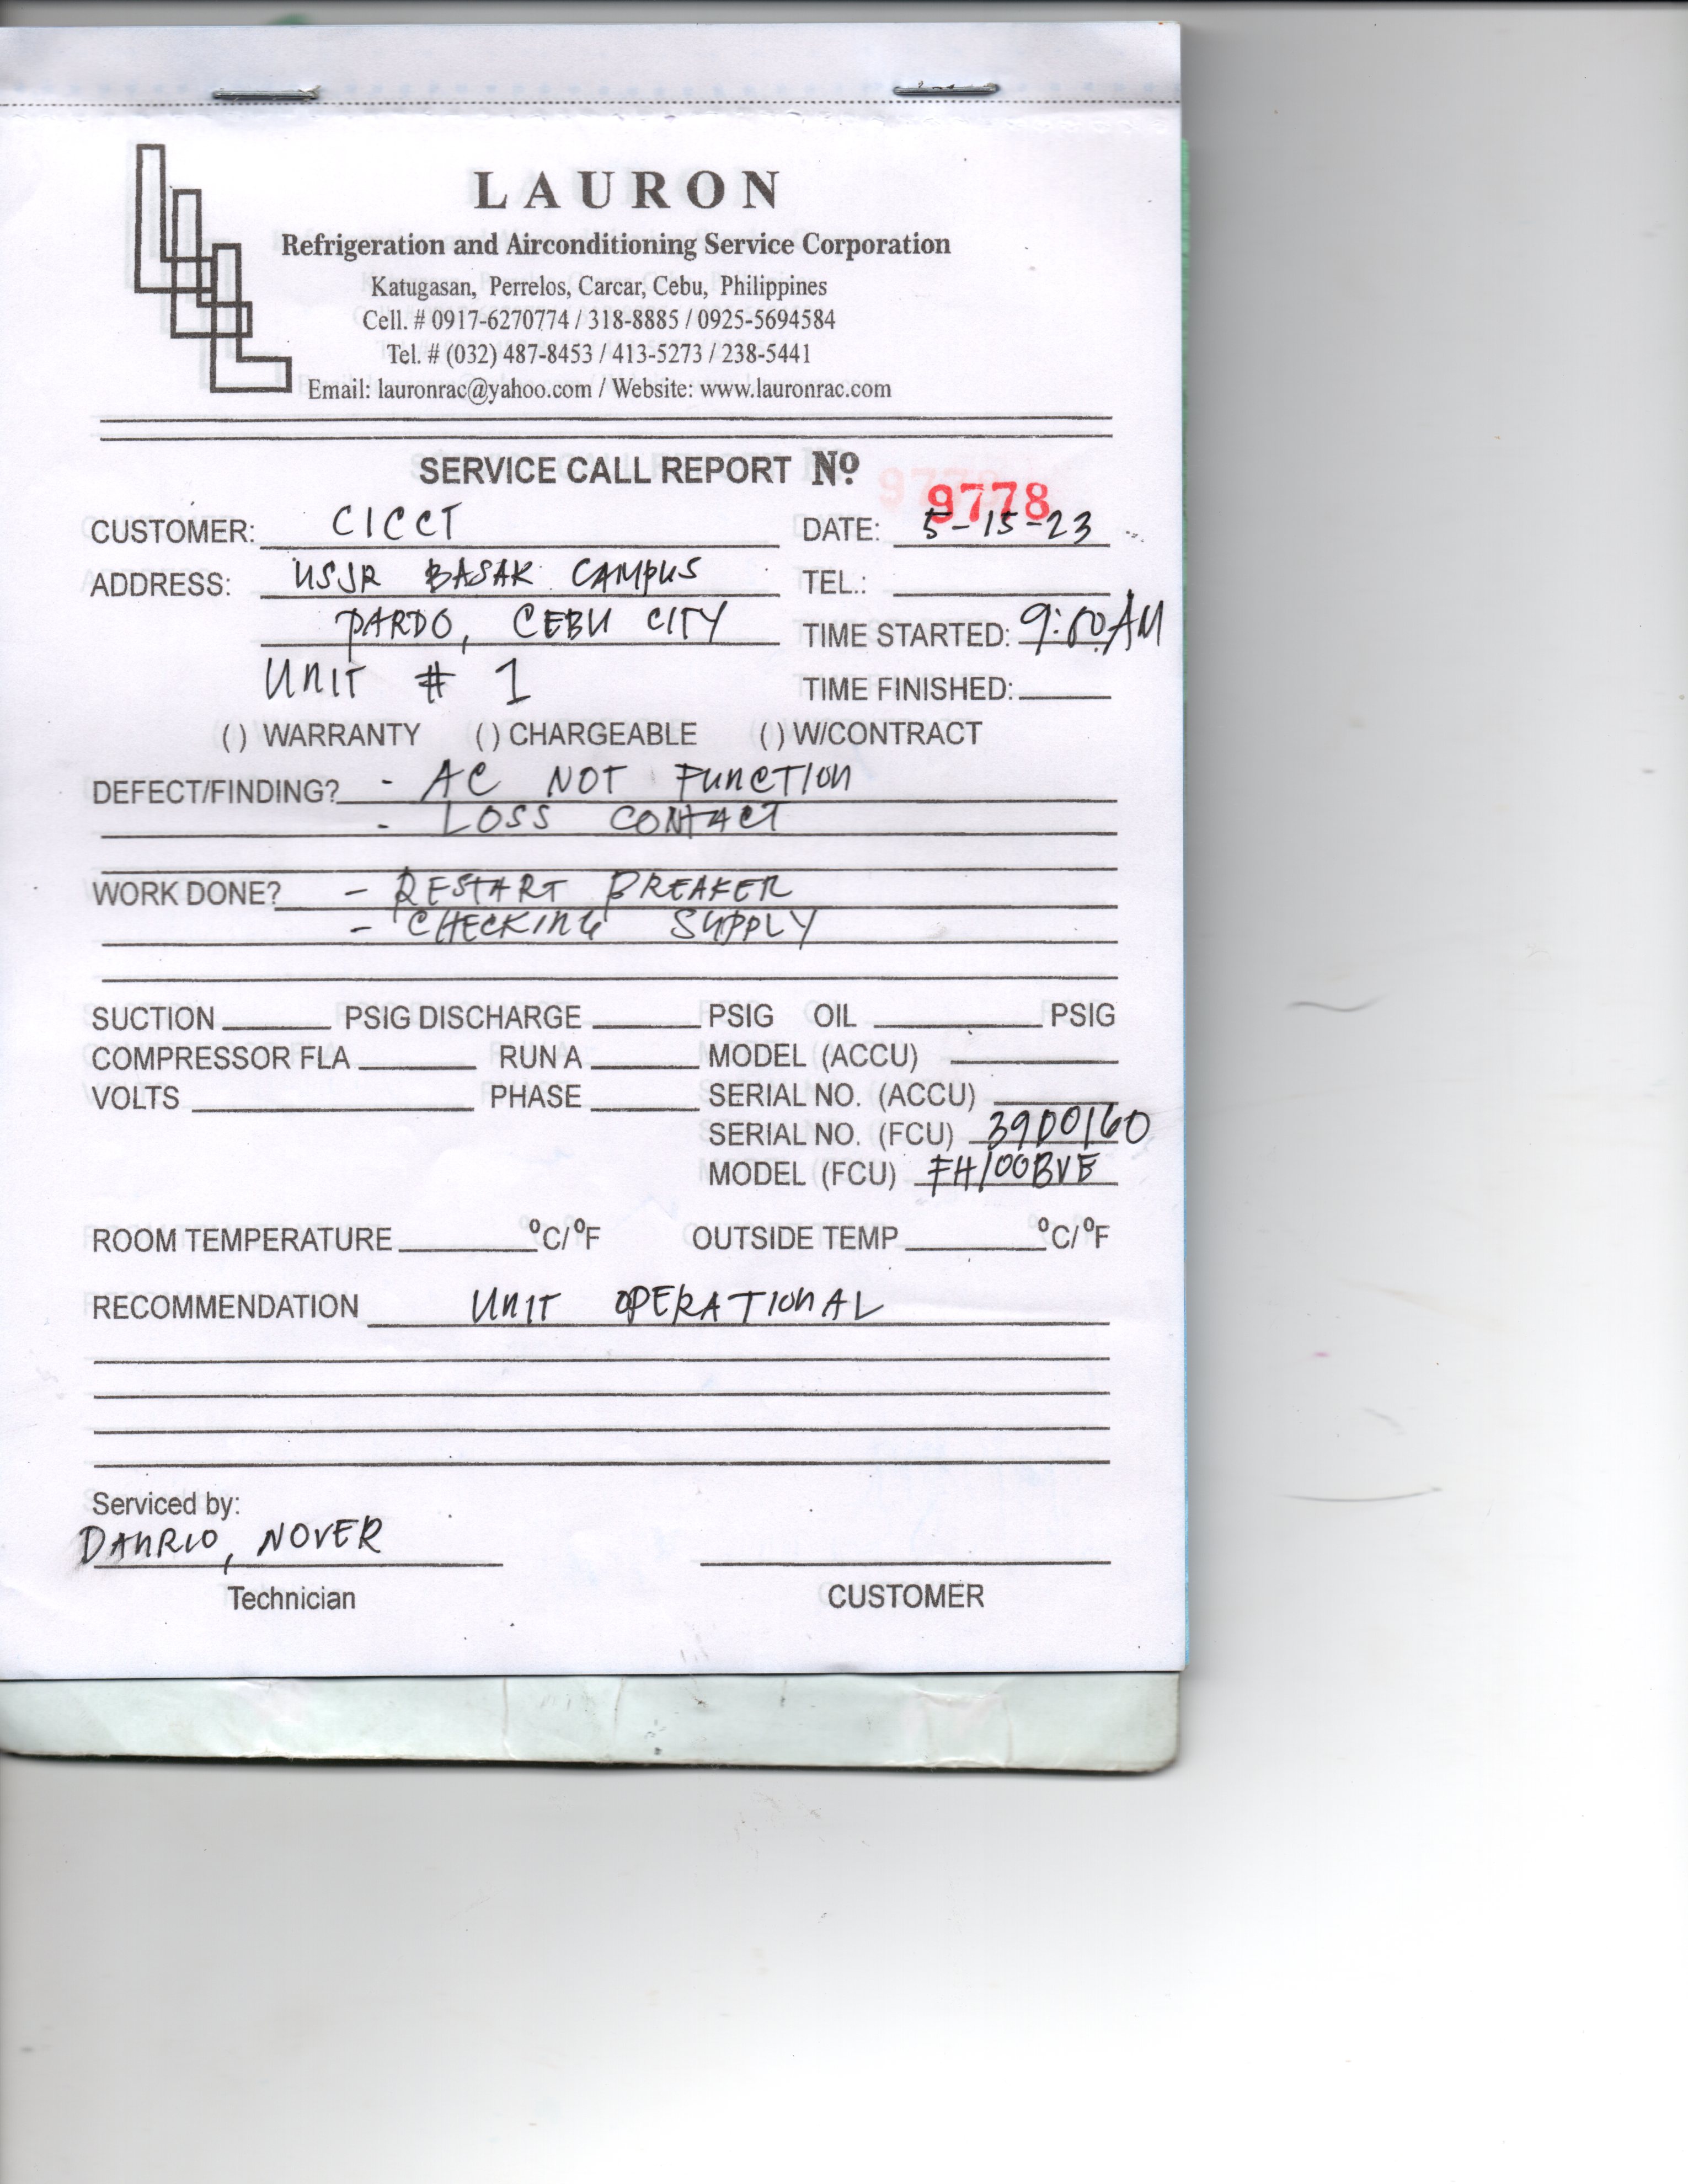 LAURON
Refrigeration and Airconditioning Service Corporation
Katugasan, Perrelos, Carcar, Cebu, Philippines
Cell. # 0917-6270774 / 318-8885 / 0925-5694584
Tel. # (032) 487-8453 / 413-5273 / 238-5441
Email: lauronrac@yahoo.com / Website: www.lauronrac.com
SERVICE CALL REPORT Nº 9778
CUSTOMER: CICCT DATE: 5-15-23
ADDRESS: USJR BASAK CAMPUS TEL.:
PARDO, CEBU CITY TIME STARTED: 9:00AM
UNIT # 1 TIME FINISHED:
( ) WARRANTY ( ) CHARGEABLE ( ) W/CONTRACT
DEFECT/FINDING? - AC NOT FUNCTION
- LOSS CONTACT
WORK DONE? - RESTART BREAKER
- CHECKING SUPPLY
SUCTION PSIG DISCHARGE PSIG OIL PSIG
COMPRESSOR FLA RUN A MODEL (ACCU)
VOLTS PHASE SERIAL NO. (ACCU)
SERIAL NO. (FCU) 39D0160
MODEL (FCU) FH100BVE
ROOM TEMPERATURE ºC/ºF OUTSIDE TEMP ºC/ºF
RECOMMENDATION UNIT OPERATIONAL
Serviced by:
DAHRIO, NOVER
Technician CUSTOMER